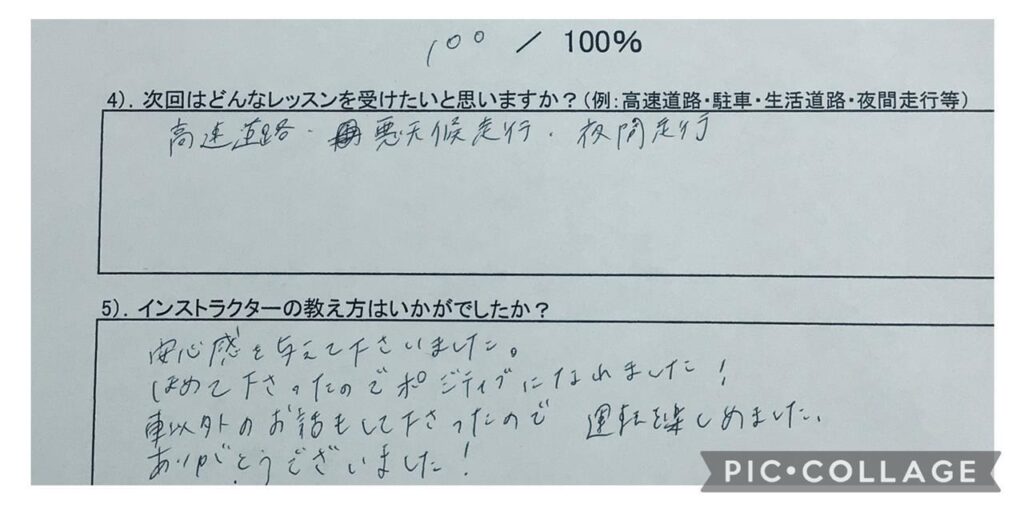 100 / 100%
4). 次回はどんなレッスンを受けたいと思いますか？(例:高速道路・駐車・生活道路・夜間走行等)
高速道路・悪天候走行・夜間走行
5). インストラクターの教え方はいかがでしたか？
安心感を与えて下さいました。
ほめて下さったのでポジティブになれました！
車以外のお話もして下さったので 運転を楽しめました。
ありがとうございました！
PIC•COLLAGE